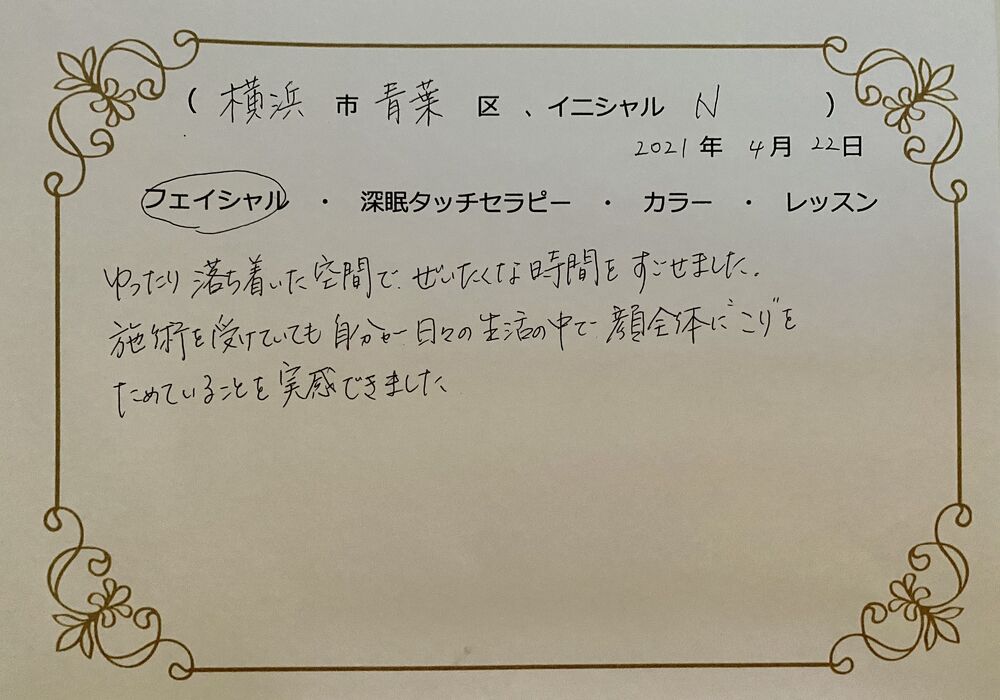 ( 横浜 市 青葉 区 、イニシャル N )
2021 年 4 月 22 日
フェイシャル ・ 深眠タッチセラピー ・ カラー ・ レッスン
ゆったり落ち着いた空間で、ぜいたくな時間をすごせました。
施術を受けていても自分が日々の生活の中で顔全体に"こり"を
ためていることを実感できました。